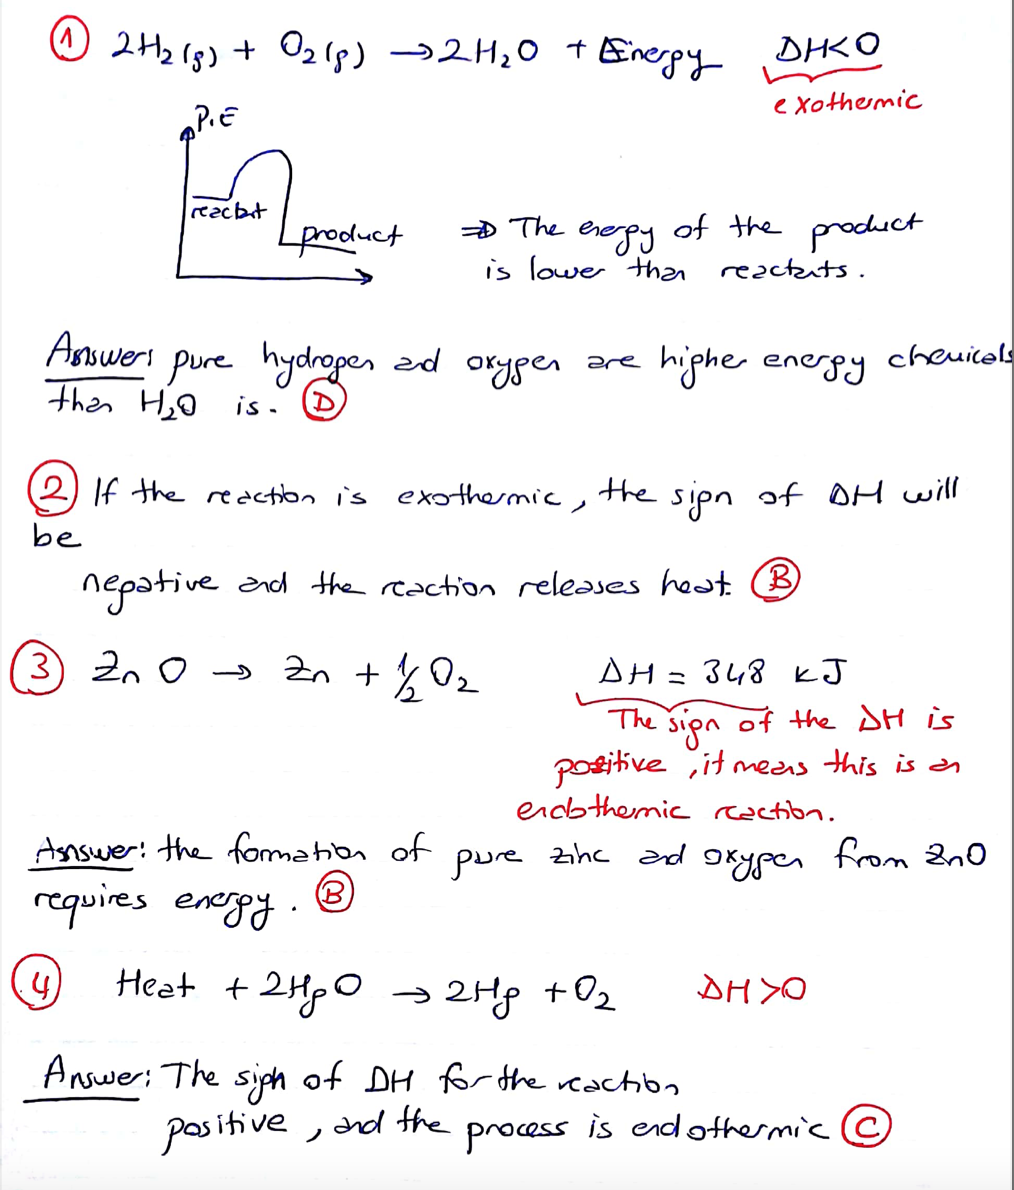 ① 2H₂(g) + O₂(g) → 2H₂O + Energy ΔH<0
exothermic
P.E
reactant
product
⇒ The energy of the product
is lower than reactants.
Answer: pure hydrogen and oxygen are higher energy chemicals
than H₂O is. Ⓓ
② If the reaction is exothermic, the sign of ΔH will
be
negative and the reaction releases heat. Ⓑ
③ ZnO → Zn + ½O₂ ΔH = 348 kJ
The sign of the ΔH is
positive, it means this is an
endothermic reaction.
Answer: the formation of pure zinc and oxygen from ZnO
requires energy. Ⓑ
④ Heat + 2HgO → 2Hg + O₂ ΔH>0
Answer: The sign of ΔH for the reaction
positive, and the process is endothermic Ⓒ